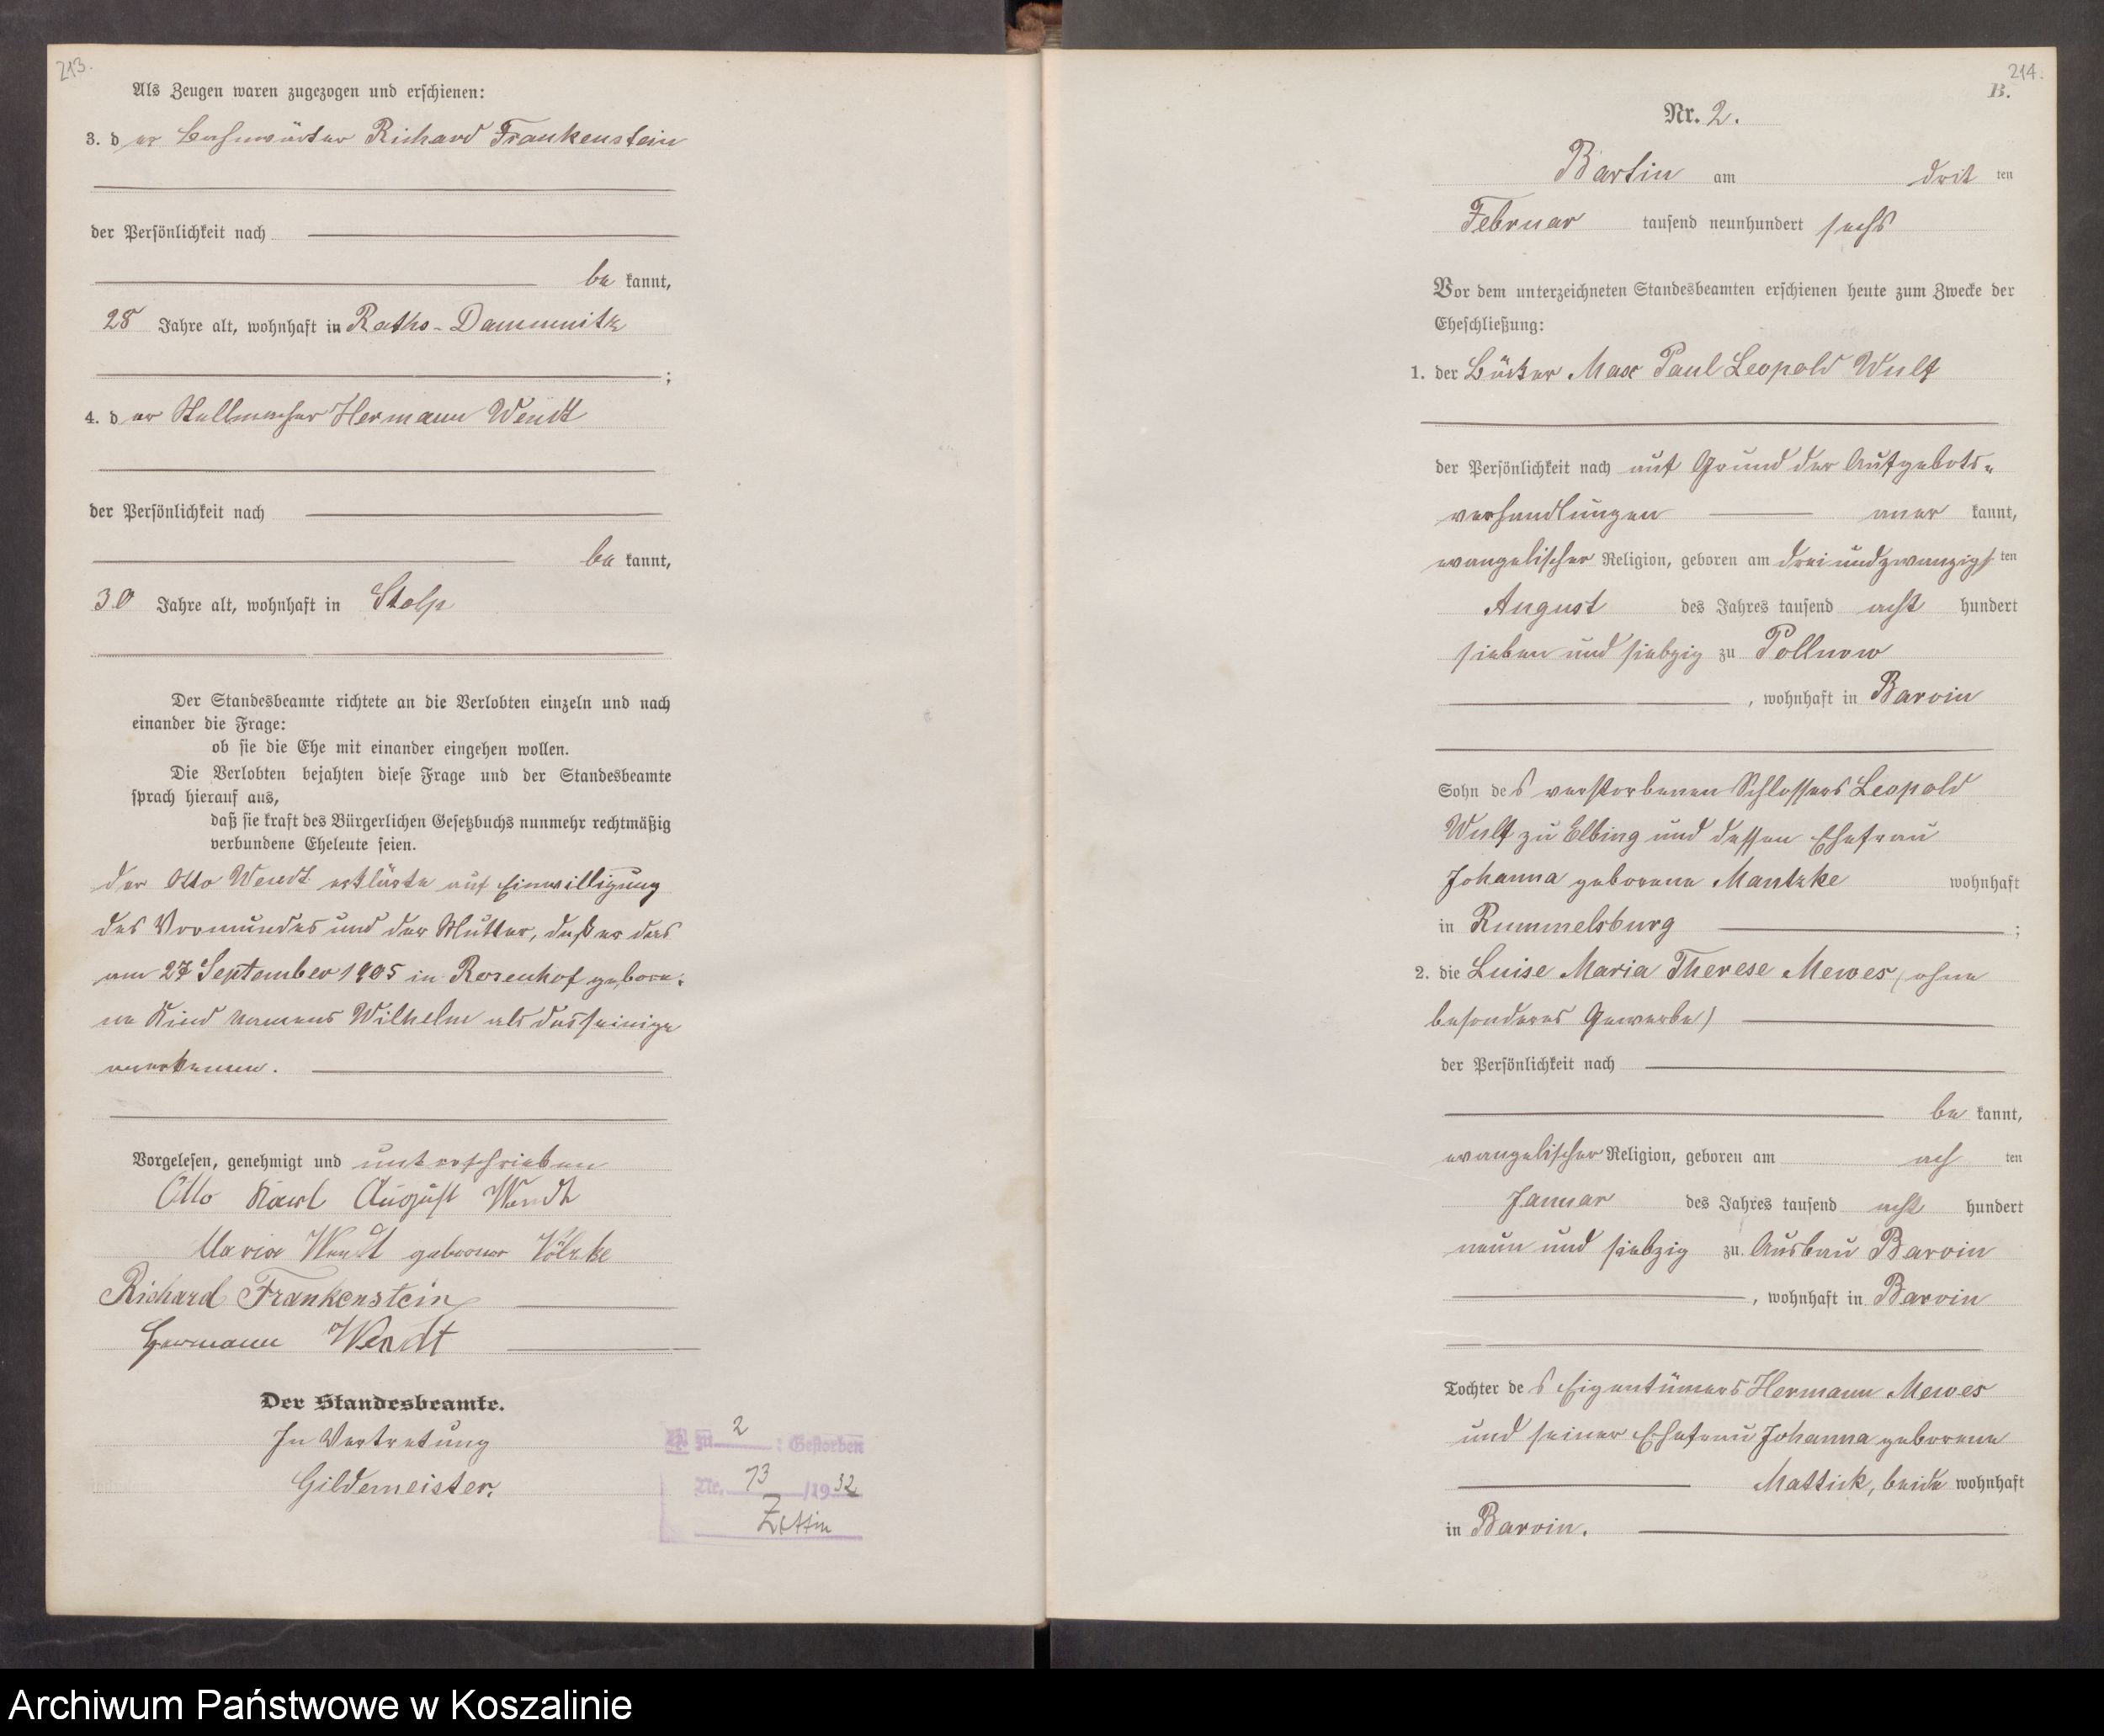 213.
Als Zeugen waren zugezogen und erschienen:
3. der Bahnwärter Richard Frankenstein
der Persönlichkeit nach
be kannt,
28 Jahre alt, wohnhaft in Raths-Dammnitz
;
4. der Stellmacher Hermann Wendt
der Persönlichkeit nach
be kannt,
30 Jahre alt, wohnhaft in Stolp
Der Standesbeamte richtete an die Verlobten einzeln und nach
einander die Frage:
ob sie die Ehe mit einander eingehen wollen.
Die Verlobten bejahten diese Frage und der Standesbeamte
sprach hierauf aus,
daß sie kraft des Bürgerlichen Gesetzbuchs nunmehr rechtmäßig
verbundene Eheleute seien.
der Otto Wendt erklärte auf Einwilligung
des Vormundes und der Mutter, daß er das
am 27 September 1905 in Rosenhof gebore-
ne Kind namens Wilhelm als das seinige
anerkenne.
Vorgelesen, genehmigt und unterschrieben
Otto Karl August Wendt
Maria Wendt geborene Völzke
Richard Frankenstein
Hermann Wendt
Der Standesbeamte.
In Vertretung
Gildemeister.
zu 2 : Gestorben
Nr. 13 /1932
Zettin
214.
B.
Nr. 2.
Bartin am dritten
Februar tausend neunhundert sechs
Vor dem unterzeichneten Standesbeamten erschienen heute zum Zwecke der
Eheschließung:
1. der Bäcker Max Paul Leopold Wulf
der Persönlichkeit nach auf Grund der Aufgebots-
verhandlungen aner kannt,
evangelischer Religion, geboren am dreiundzwanzigsten
August des Jahres tausend acht hundert
sieben und siebzig zu Pollnow
, wohnhaft in Barvin
Sohn des verstorbenen Schlossers Leopold
Wulf zu Elbing und dessen Ehefrau
Johanna geborene Mantzke wohnhaft
in Rummelsburg ;
2. die Luise Maria Therese Mewes (ohne
besonderes Gewerbe)
der Persönlichkeit nach
be kannt,
evangelischer Religion, geboren am achten
Januar des Jahres tausend acht hundert
neun und siebzig zu Ausbau Barvin
, wohnhaft in Barvin
Tochter des Eigentümers Hermann Mewes
und seiner Ehefrau Johanna geborene
Mattick, beide wohnhaft
in Barvin.
Archiwum Państwowe w Koszalinie